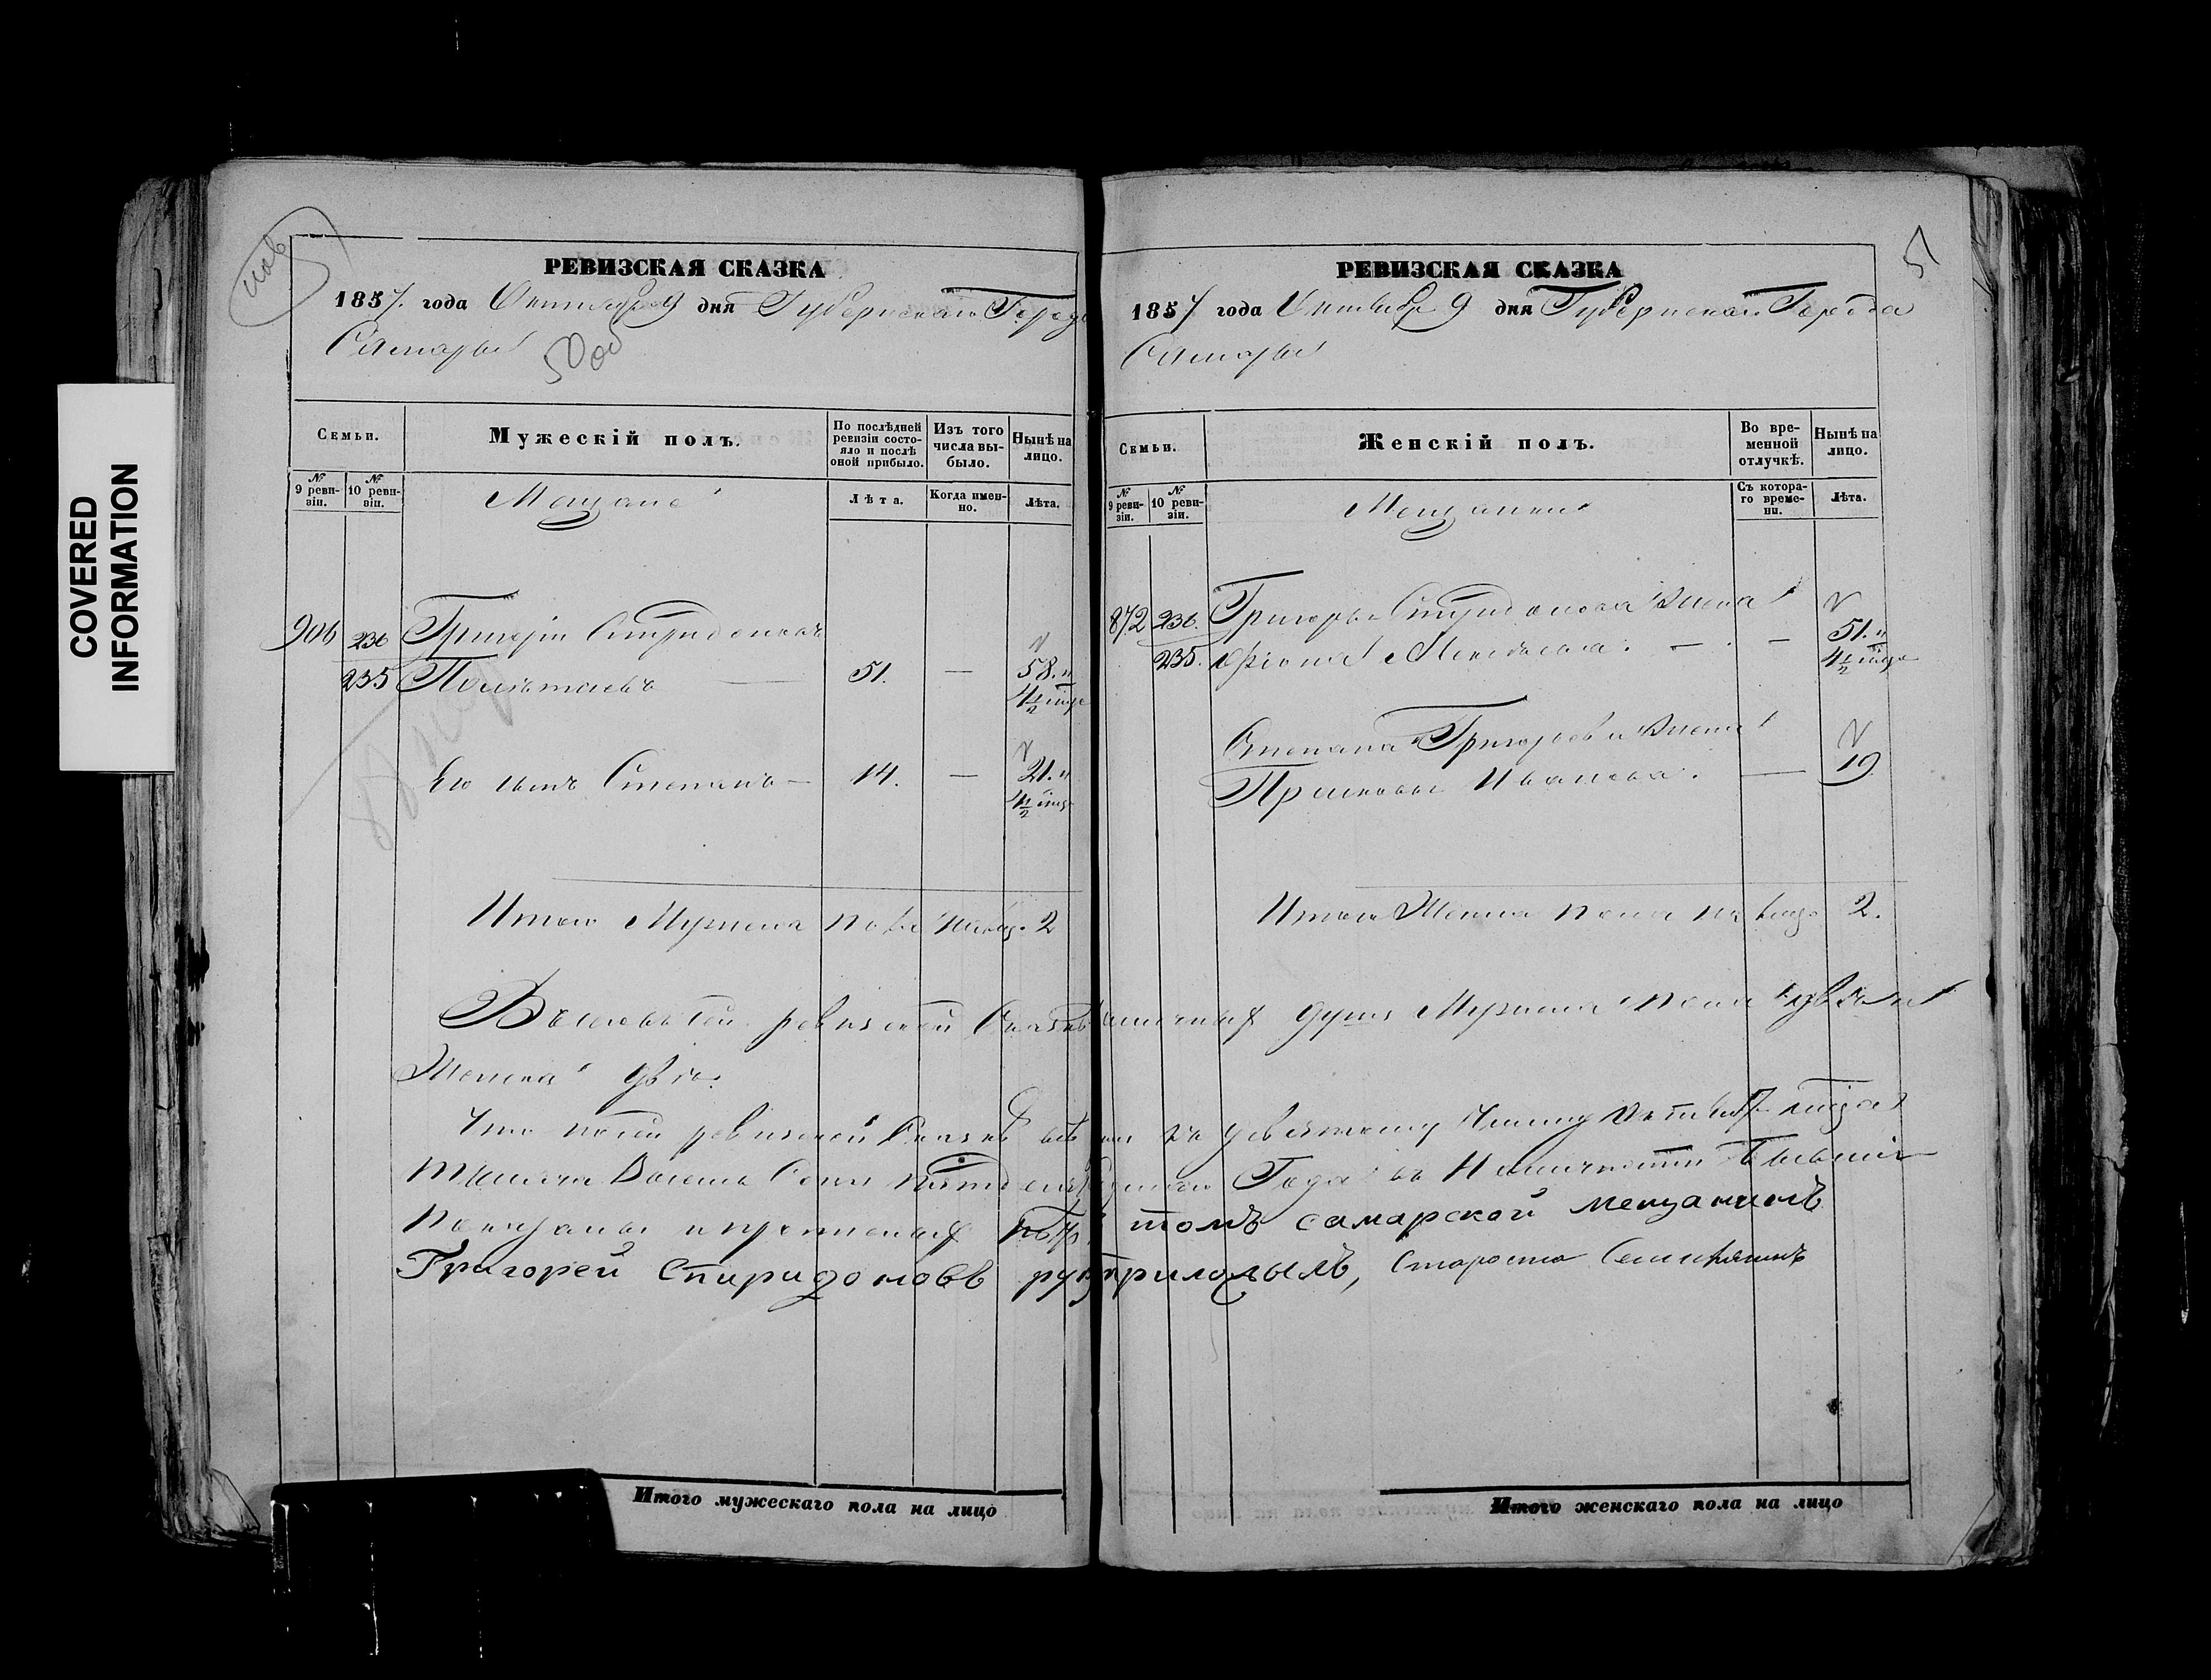 COVERED
INFORMATION
РЕВИЗСКАЯ СКАЗКА
1857. года Октября 9 дня Губернскаго Города
Самары
Семьи.
Мужескій полъ.
По послѣдней ревизіи состояло и послѣ оной прибыло.
Изъ того числа выбыло.
Нынѣ на лицо.
№ 9 ревизіи.
№ 10 ревизіи.
Мещане
Лѣта.
Когда именно.
Лѣта.
906 236 Григорій Спиридоновъ
235 51. — 58. и
4½ мѣся
Его сынъ Степанъ — 14. — 21. и
4½ мѣся
Итого Мужеска пола на лицо 2
РЕВИЗСКАЯ СКАЗКА
1857 года Октября 9 дня Губернскаго Города
Самары
5
Семьи.
Женскій полъ.
Во временной отлучкѣ.
Нынѣ на лицо.
№ 9 ревизіи.
№ 10 ревизіи.
Мещанки
Съ котораго времени.
Лѣта.
872 236. Григорья Спиридонова жена
235. — — 51. и
4½ мѣся
Степана Григорьева жена
Прасковья Иванова. — 19
Итого Женска пола на лицо 2.
В сей ревизской Сказкѣ наличныхъ душъ Мужеска пола двѣ и
Женска двѣ.
Что по сей ревизской Сказкѣ всѣ къ девятому Числу Октября мѣсяца
Тысяча Восемь Сотъ пятьдесятъ седьмаго Года въ Наличности Бывшіе
Показаны и прописныхъ нѣтъ в томъ самарской мещанинъ
Григорей Спиридоновъ руку приложылъ, Староста
Итого мужескаго пола на лицо
Итого женскаго пола на лицо